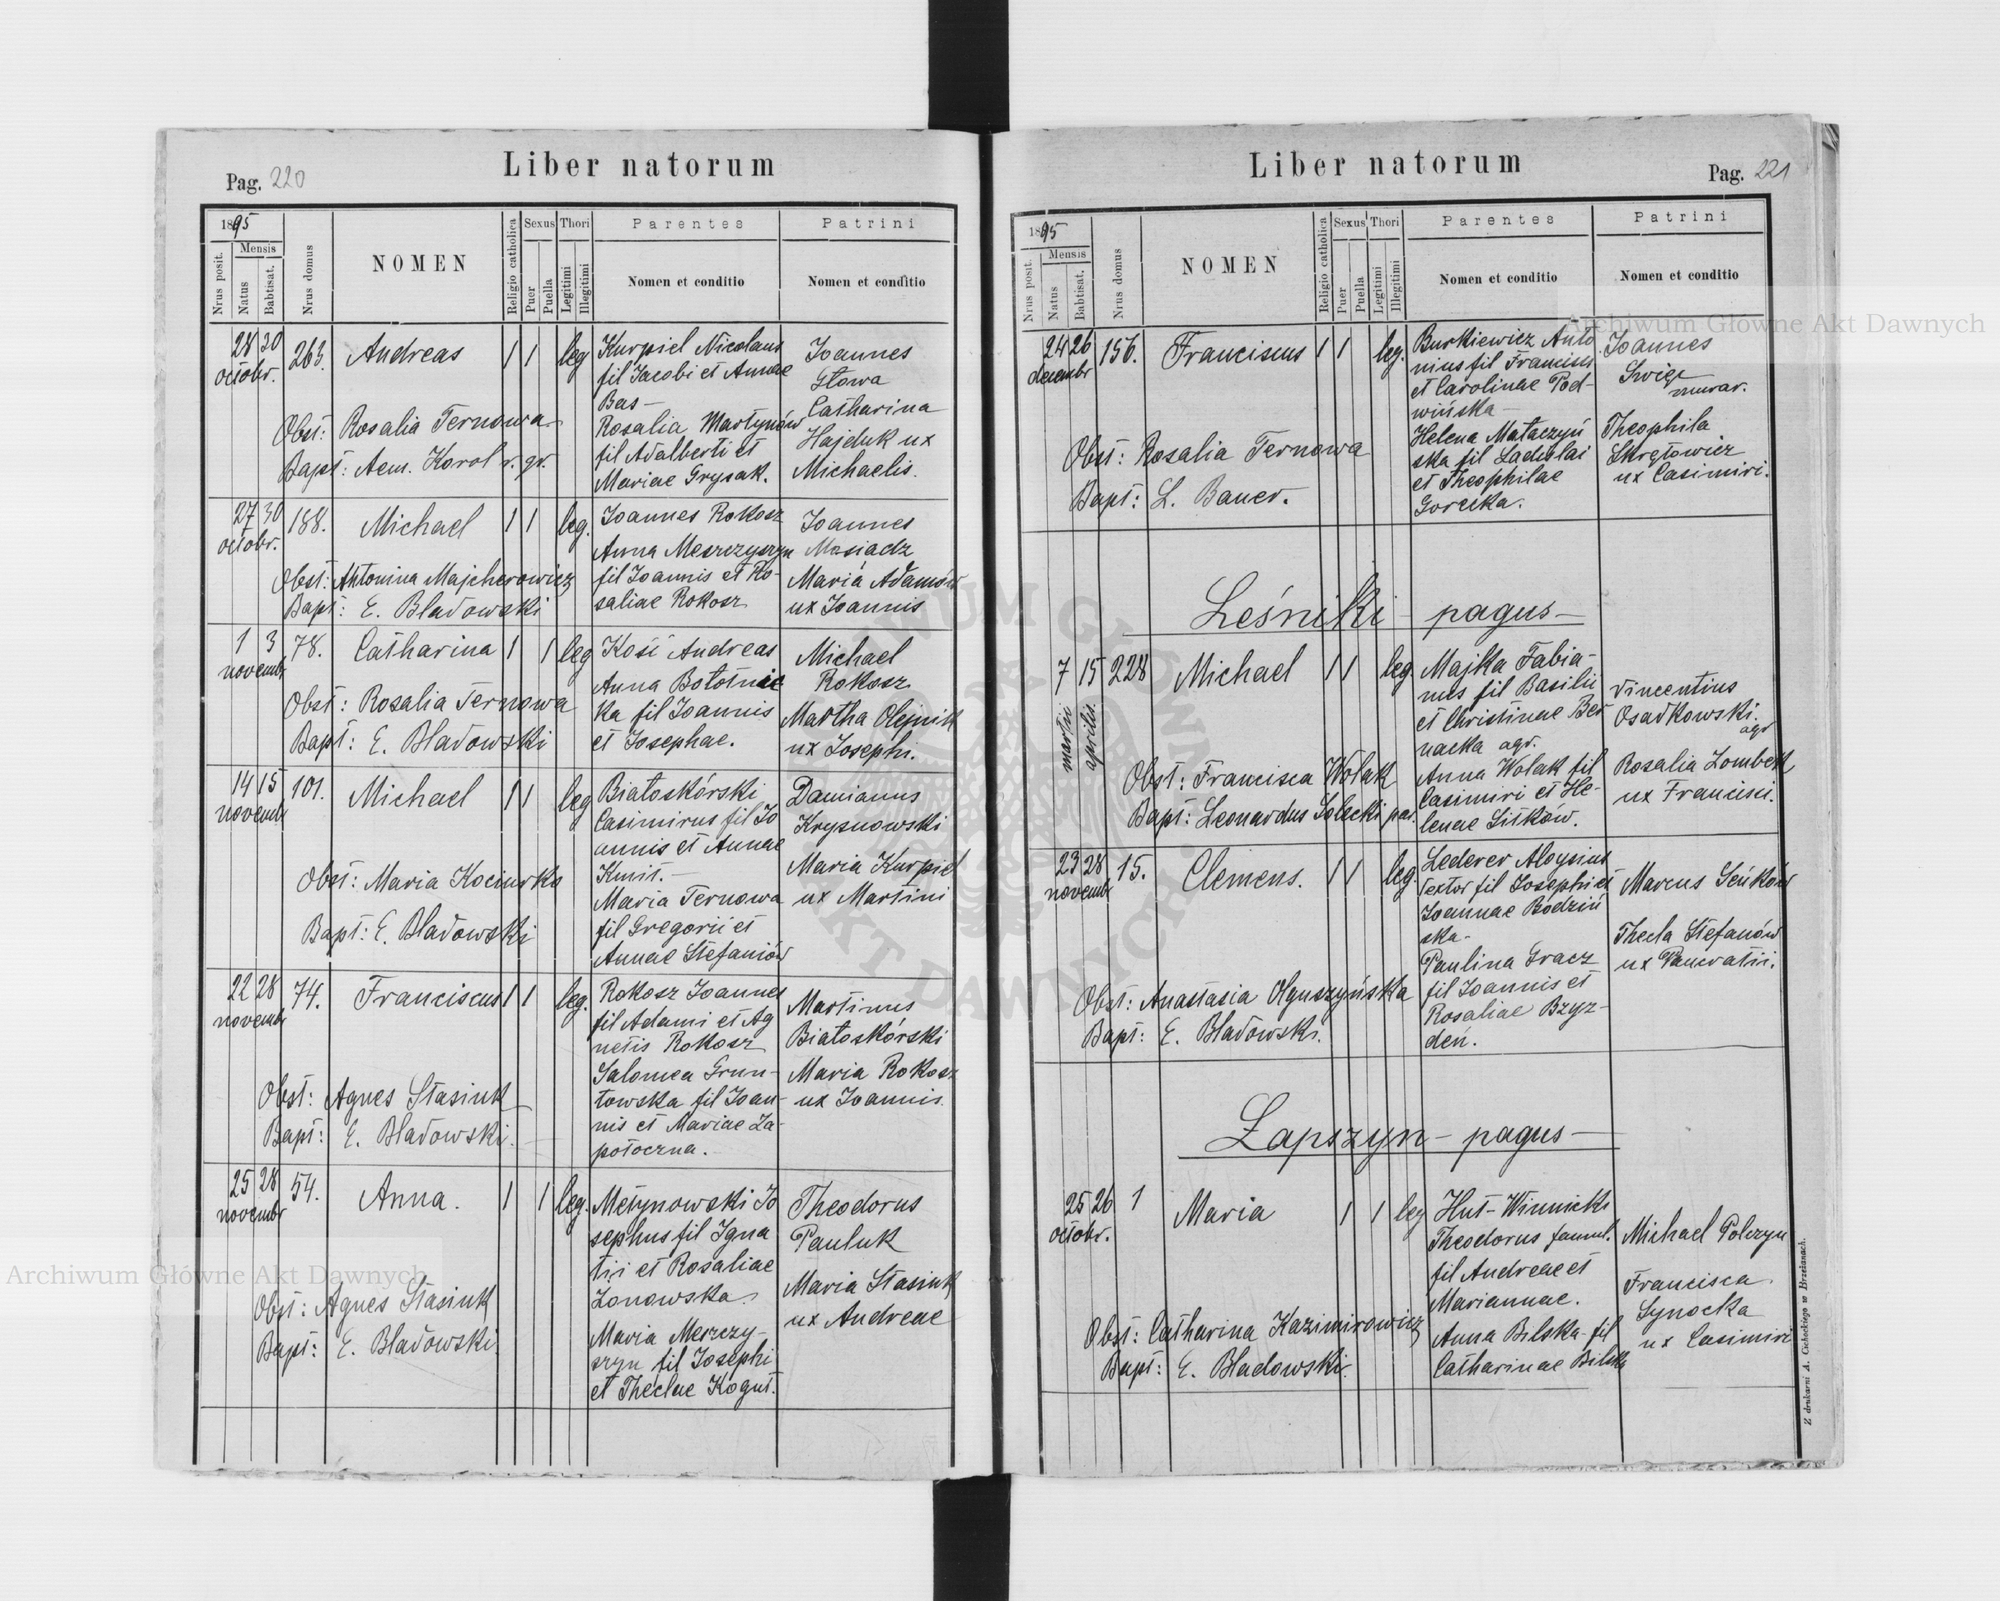 Liber natorum
Pag. 220
1895
Nrus posit.
Mensis
Natus
Babtisat.
Nrus domus
NOMEN
Religio catholica
Sexus
Puer
Puella
Thori
Legitimi
Illegitimi
Parentes
Nomen et conditio
Patrini
Nomen et conditio
28 30 263. Andreas 1 1 leg
octobr.
Kurpiel Nicolaus
fil Jacobi et Annae
Bas-
Rosalia Martynów
fil Adalberti et
Mariae Grysak.
Joannes
Głowa
Catharina
Hajduk ux
Michaelis.
Obst: Rosalia Ternowa
Bapt: Aem. Korol r. gr.
27 30 188. Michael 1 1 leg.
octobr.
Joannes Rokosz
Anna Meszczyszyn
fil Joannis et Ro-
saliae Rokosz
Joannes
Masiadz
Maria Adamów
ux Joannis
Obst: Antonina Majcherowicz
Bapt: E. Bładowski
1 3 78. Catharina 1 1 leg
novembr
Kość Andreas
Anna Bołotnic
ka fil Joannis
et Josephae.
Michael
Rokosz
Martha Olejnik
ux Josephi.
Obst: Rosalia Ternowa
Bapt: E. Bładowski
14 15 101. Michael 1 1 leg
novembr
Białoskórski
Casimirus fil Jo
annis et Annae
Kmit.-
Maria Ternowa
fil Gregorii et
Annae Stefaniów
Damianus
Krysnowski
Maria Kurpiel
ux Martini
Obst: Maria Kociurko
Bapt: E. Bładowski
22 28 74. Franciscus 1 1 leg.
novembr
Rokosz Joannes
fil Adami et Ag
netis Rokosz
Salomea Grun-
towska fil Joan-
nis et Mariae Za-
potoczna.
Martinus
Białoskórski
Maria Rokosz
ux Joannis.
Obst: Agnes Stasiuk
Bapt: E. Bładowski.
25 28 54. Anna. 1 1 leg.
novembr
Metynowski Jo
sephus fil Igna
tii et Rosaliae
Zonowska.
Maria Meszczy-
szyn fil Josephi
et Theclae Kogut.
Theodorus
Pauluk
Maria Stasiuk
ux Andreae
Obst: Agnes Stasiuk
Bapt: E. Bładowski.
Liber natorum
Pag. 221
1895
Nrus posit.
Mensis
Natus
Babtisat.
Nrus domus
NOMEN
Religio catholica
Sexus
Puer
Puella
Thori
Legitimi
Illegitimi
Parentes
Nomen et conditio
Patrini
Nomen et conditio
24 26 156. Franciscus 1 1 leg.
decembr
Burkiewicz Anto
nius fil Francisci
et Carolinae Pod-
wińska-
Helena Mataczyń
ska fil Ladislai
et Theophilae
Gorecka.
Joannes
Święs
murar.
Theophila
Skrętowicz
ux Casimiri.
Obst: Rosalia Ternowa
Bapt: L. Bauer.
Leśniki - pagus-
7 15 228 Michael 1 1 leg.
martii aprilis
Majka Fabia-
nus fil Basilii
et Christinae Ber
nacka agr.
Anna Wolak fil
Casimiri et He-
lenae Sitków.
Vincentius
Osadkowski.
agr
Rosalia Zombek
ux Francisci.
Obst: Francisca Wolak
Bapt: Leonardus Solecki par.
23 28 15. Clemens. 1 1 leg.
novembr
Lederer Aloysius
textor fil Josephi et
Joannae Bodziń
ska-
Paulina Gracz
fil Joannis et
Rosaliae Bzyz-
deń.
Marcus Seńków
Thecla Stefanów
ux Pancratii.
Obst: Anastasia Olguszyńska
Bapt: E. Bładowski.
Łapszyn - pagus-
25 26 1 Maria 1 1 leg
octobr.
Hut-Winnicki
Theodorus famul.
fil Andreae et
Mariannae.
Anna Bilska fil
Catharinae Bilska
Michael Polczyn
Francisca
Synocka
ux Casimiri
Obst: Catharina Kazimirowicz
Bapt: E. Bładowski.
Z drukarni A. Cichockiego w Brzeżanach.
Archiwum Główne Akt Dawnych
Archiwum Główne Akt Dawnych
ARCHIWUM GŁÓWNE AKT DAWNYCH